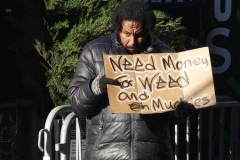 NEED MONEY
FOR WEED
and
Munchies